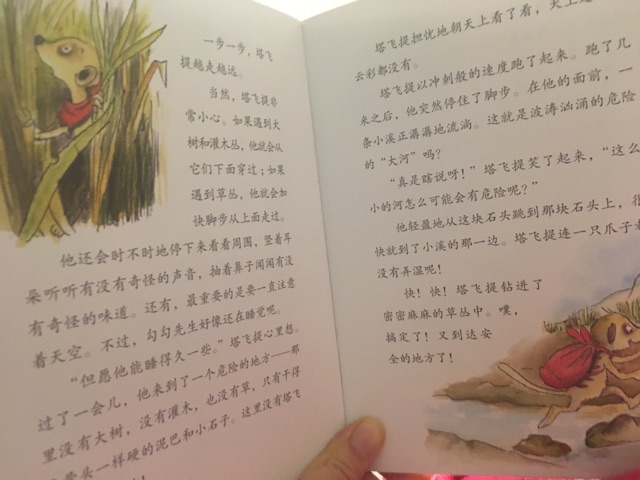 一步一步，塔飞
提越走越远。
当然，塔飞提非
常小心。如果遇到大
树和灌木丛，他就会从
它们下面穿过；如果
遇到草丛，他就会加
快脚步从上面走过。
他还会时不时地停下来看看周围，竖着耳
朵听听有没有奇怪的声音，抽着鼻子闻闻有没
有奇怪的味道。还有，最重要的是要一直注意
着天空。不过，勾勾先生好像还在睡觉呢。
“但愿他能睡得久一些。”塔飞提心里想。
过了一会儿，他来到了一个危险的地方——那
里没有大树，没有灌木，也没有草，只有干得
骨头一样硬的泥巴和小石子。这里没有塔飞
塔飞提担忧地朝天上看了看，天上连
云彩都没有。
塔飞提以冲刺般的速度跑了起来。跑了几
来之后，他突然停住了脚步。在他的面前，一
条小溪正潺潺地流淌。这就是波涛汹涌的危险
的“大河”吗？
“真是瞎说呀！”塔飞提笑了起来，“这么
小的河怎么可能会有危险呢？”
他轻盈地从这块石头跳到那块石头上，很
快就到了小溪的那一边。塔飞提连一只爪子
没有弄湿呢！
快！快！塔飞提钻进了
密密麻麻的草丛中。噗，
搞定了！又到达安
全的地方了！